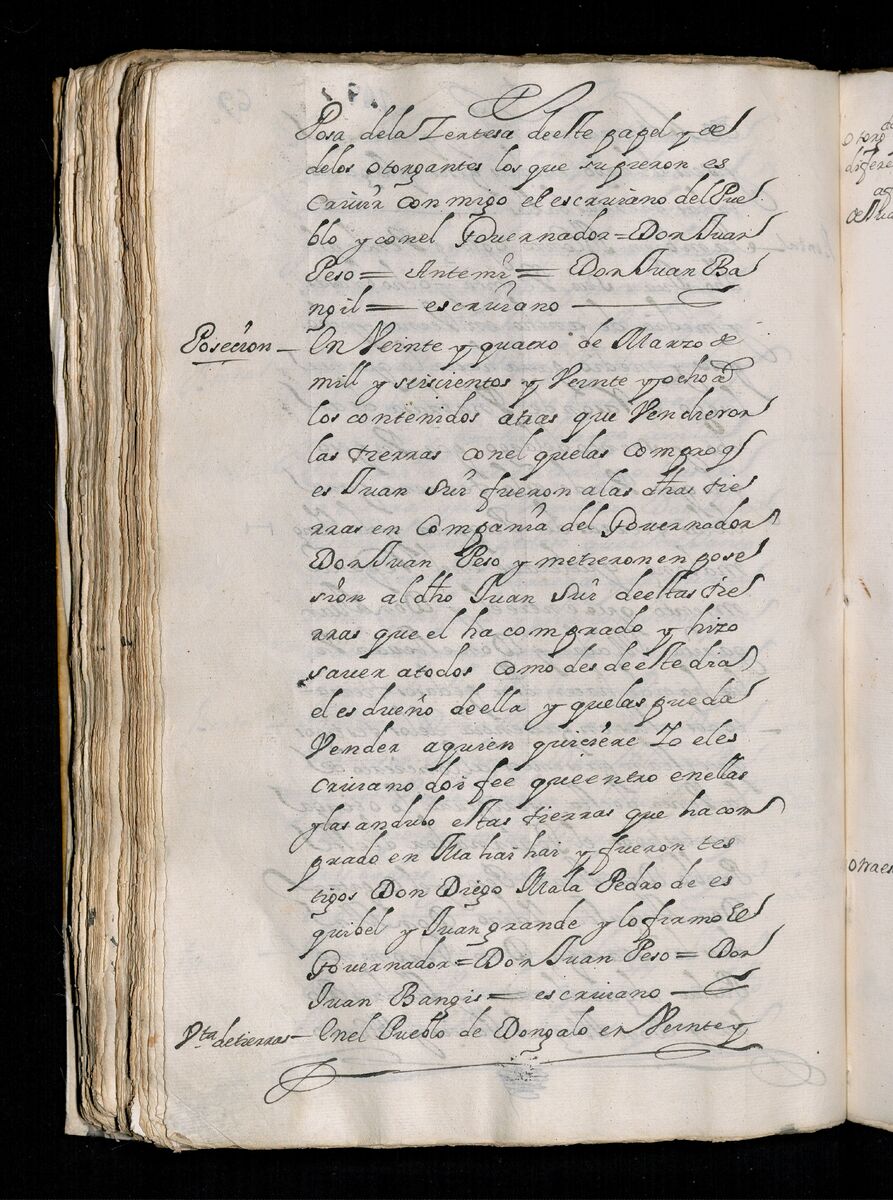 Posa dela Zertesa deeste papel y de
delos otorgantes los que supieron es
crivir conmigo el escriviano del Pue
blo y conel Governador = Don Juan
Peso = Antemi = Don Juan Ba
ngil = escriviano
Posecion — En Veinte y quatro de Marzo de
mill y seiscientos y Veinte y ocho a
los contenidos atras que Vendieron
las tierras conel quelas compro q
es Juan Sui fueron alas dhas tie
rras en Compania del Governador
Don Juan Peso y metieron en pose
sion al dho Juan Sui deestas tie
rras que el ha comprado y hizo
saver atodos como desdeeste dia
el es dueño deella y quelas pueda
Vender aquien quiciere Io el es
criviano doi fee queentro enellas
ylas andubo estas tierras que hacom
prado en Mahaihai y fueron tes
tigos Don Diego Mala Pedro de es
quibel y Juan grande y lo firmo el
Governador = Don Juan Peso = Don
Juan Bangis = escriviano
Vta detierras — Enel Pueblo de Dongalo en Veinte y
otorg
difere
otraes